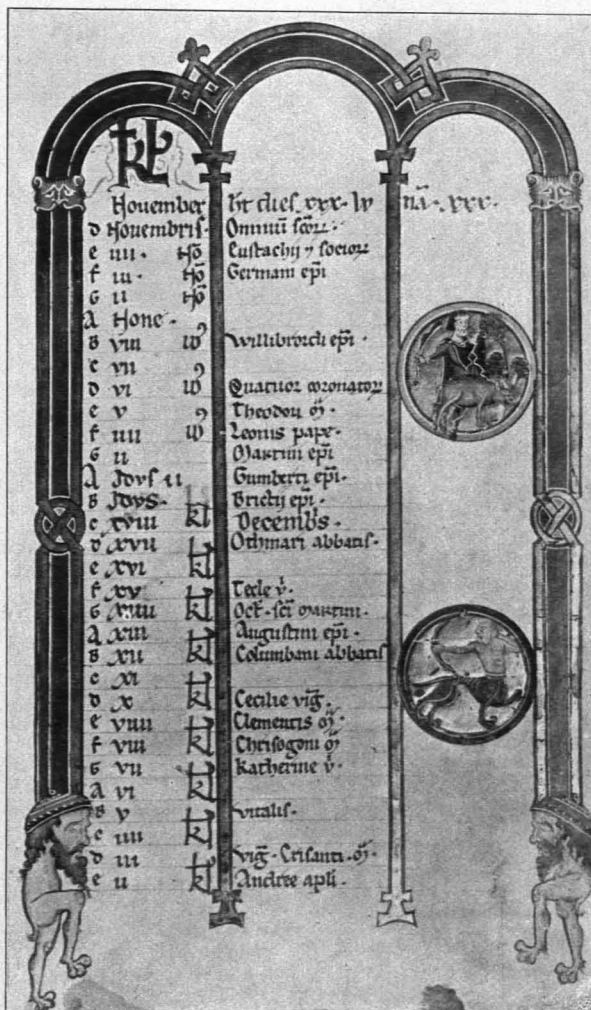 KL
November ht dies xxx. lv nā. xxx.
d Novembris. Omniū scōrr.
e iiii. Nō Eustachij ⁊ sociorr
f iii. Nō Germani epi
G ii Nō
A None.
B viii Id⁹ Willibrordi epi.
c vii
d vi Id⁹ Quatuor coronatorr
e v Theodori m̄.
f iiii Id⁹ Leonis pape.
G ii Martini epi
A Idvs ii Gumberti epi.
B Idvs. Bricij epi.
c xviii kl Decembs.
d xvii kl Othmari abbatis.
e xvi kl
f xv kl Tecle v̄.
G xiiii kl Oct. sci martini.
A xiii kl Augustini epi.
B xii kl Columbani abbatis
c xi kl
d x kl Cecilie virḡ.
e viiii kl Clementis m̄.
f viii kl Chrisogoni m̄
G vii kl Katherine v̄.
A vi kl
B v kl vitalis.
c iiii
d iii kl Viḡ. Crisanti. m̄.
e ii kl Andree apli.